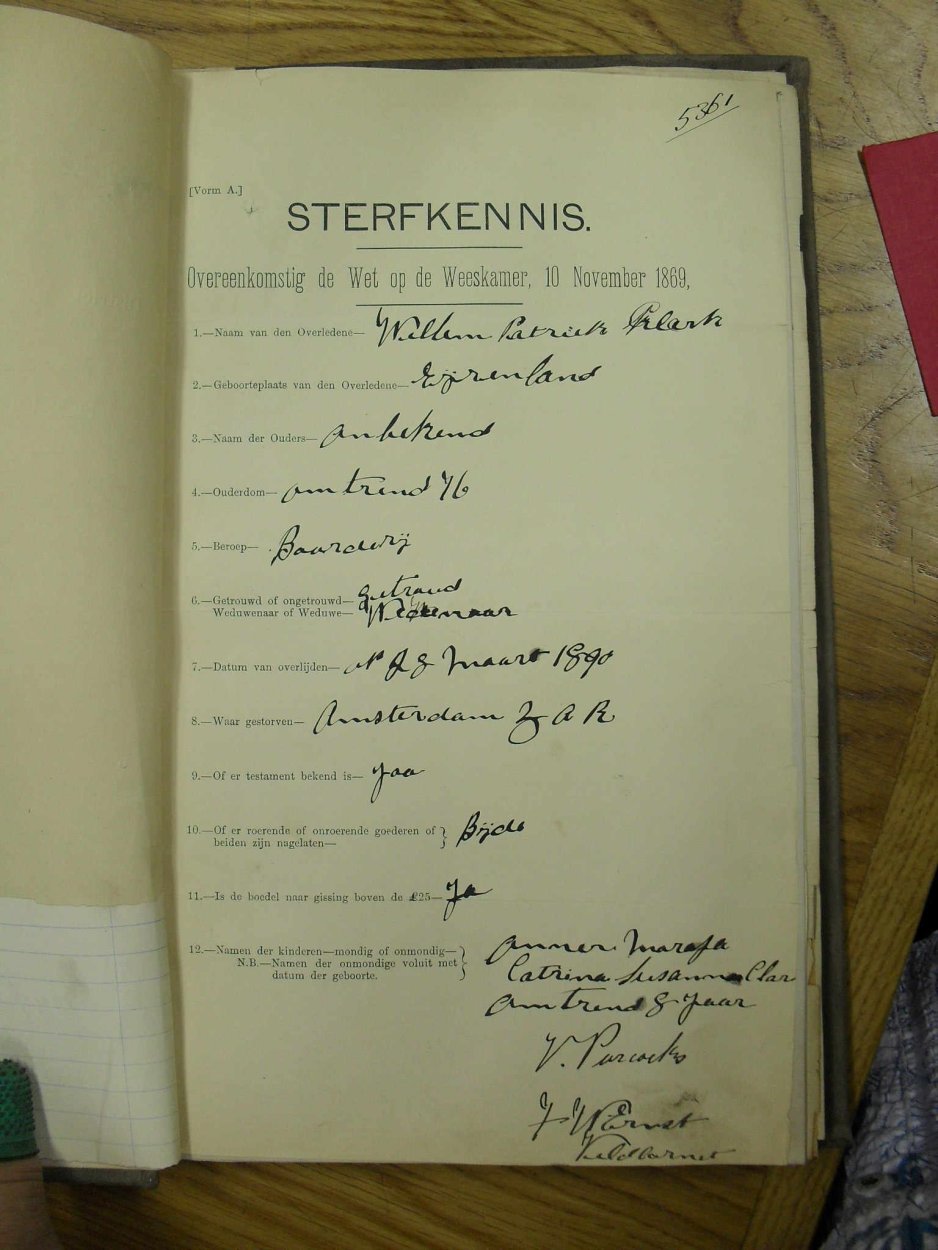 5361
[Vorm A.]
STERFKENNIS.
Overeenkomstig de Wet op de Weeskamer, 10 November 1869,
1.—Naam van den Overledene— Willem Patrick Klark
2.—Geboorteplaats van den Overledene— Eijrenland
3.—Naam der Ouders— onbekend
4.—Ouderdom— omtrend 76
5.—Beroep— Boarderij
6.—Getrouwd of ongetrouwd— getroud
Weduwenaar of Weduwe— Wedenaar
7.—Datum van overlijden— Maart 1890
8.—Waar gestorven— Amsterdam Z A R
9.—Of er testament bekend is— Jaa
10.—Of er roerende of onroerende goederen of
beiden zijn nagelaten— } Bijde
11.—Is de boedel naar gissing boven de £25— Ja
12.—Namen der kinderen—mondig of onmondig—
N.B.—Namen der onmondige voluit met
datum der geboorte. }
Catrina Susanna Clar
omtrend 8 Jaar
Ernst